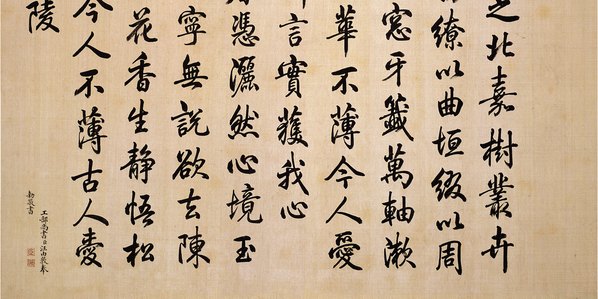 之北嘉樹叢卉
繚以曲垣綴以周
窓牙籤萬軸漱
華不薄今人愛
言實獲我心
憑灑然心境玉
寧無說欲去陳
花香生静悟松
今人不薄古人愛
陵
工部尚書臣汪由敦奉
勅敬書